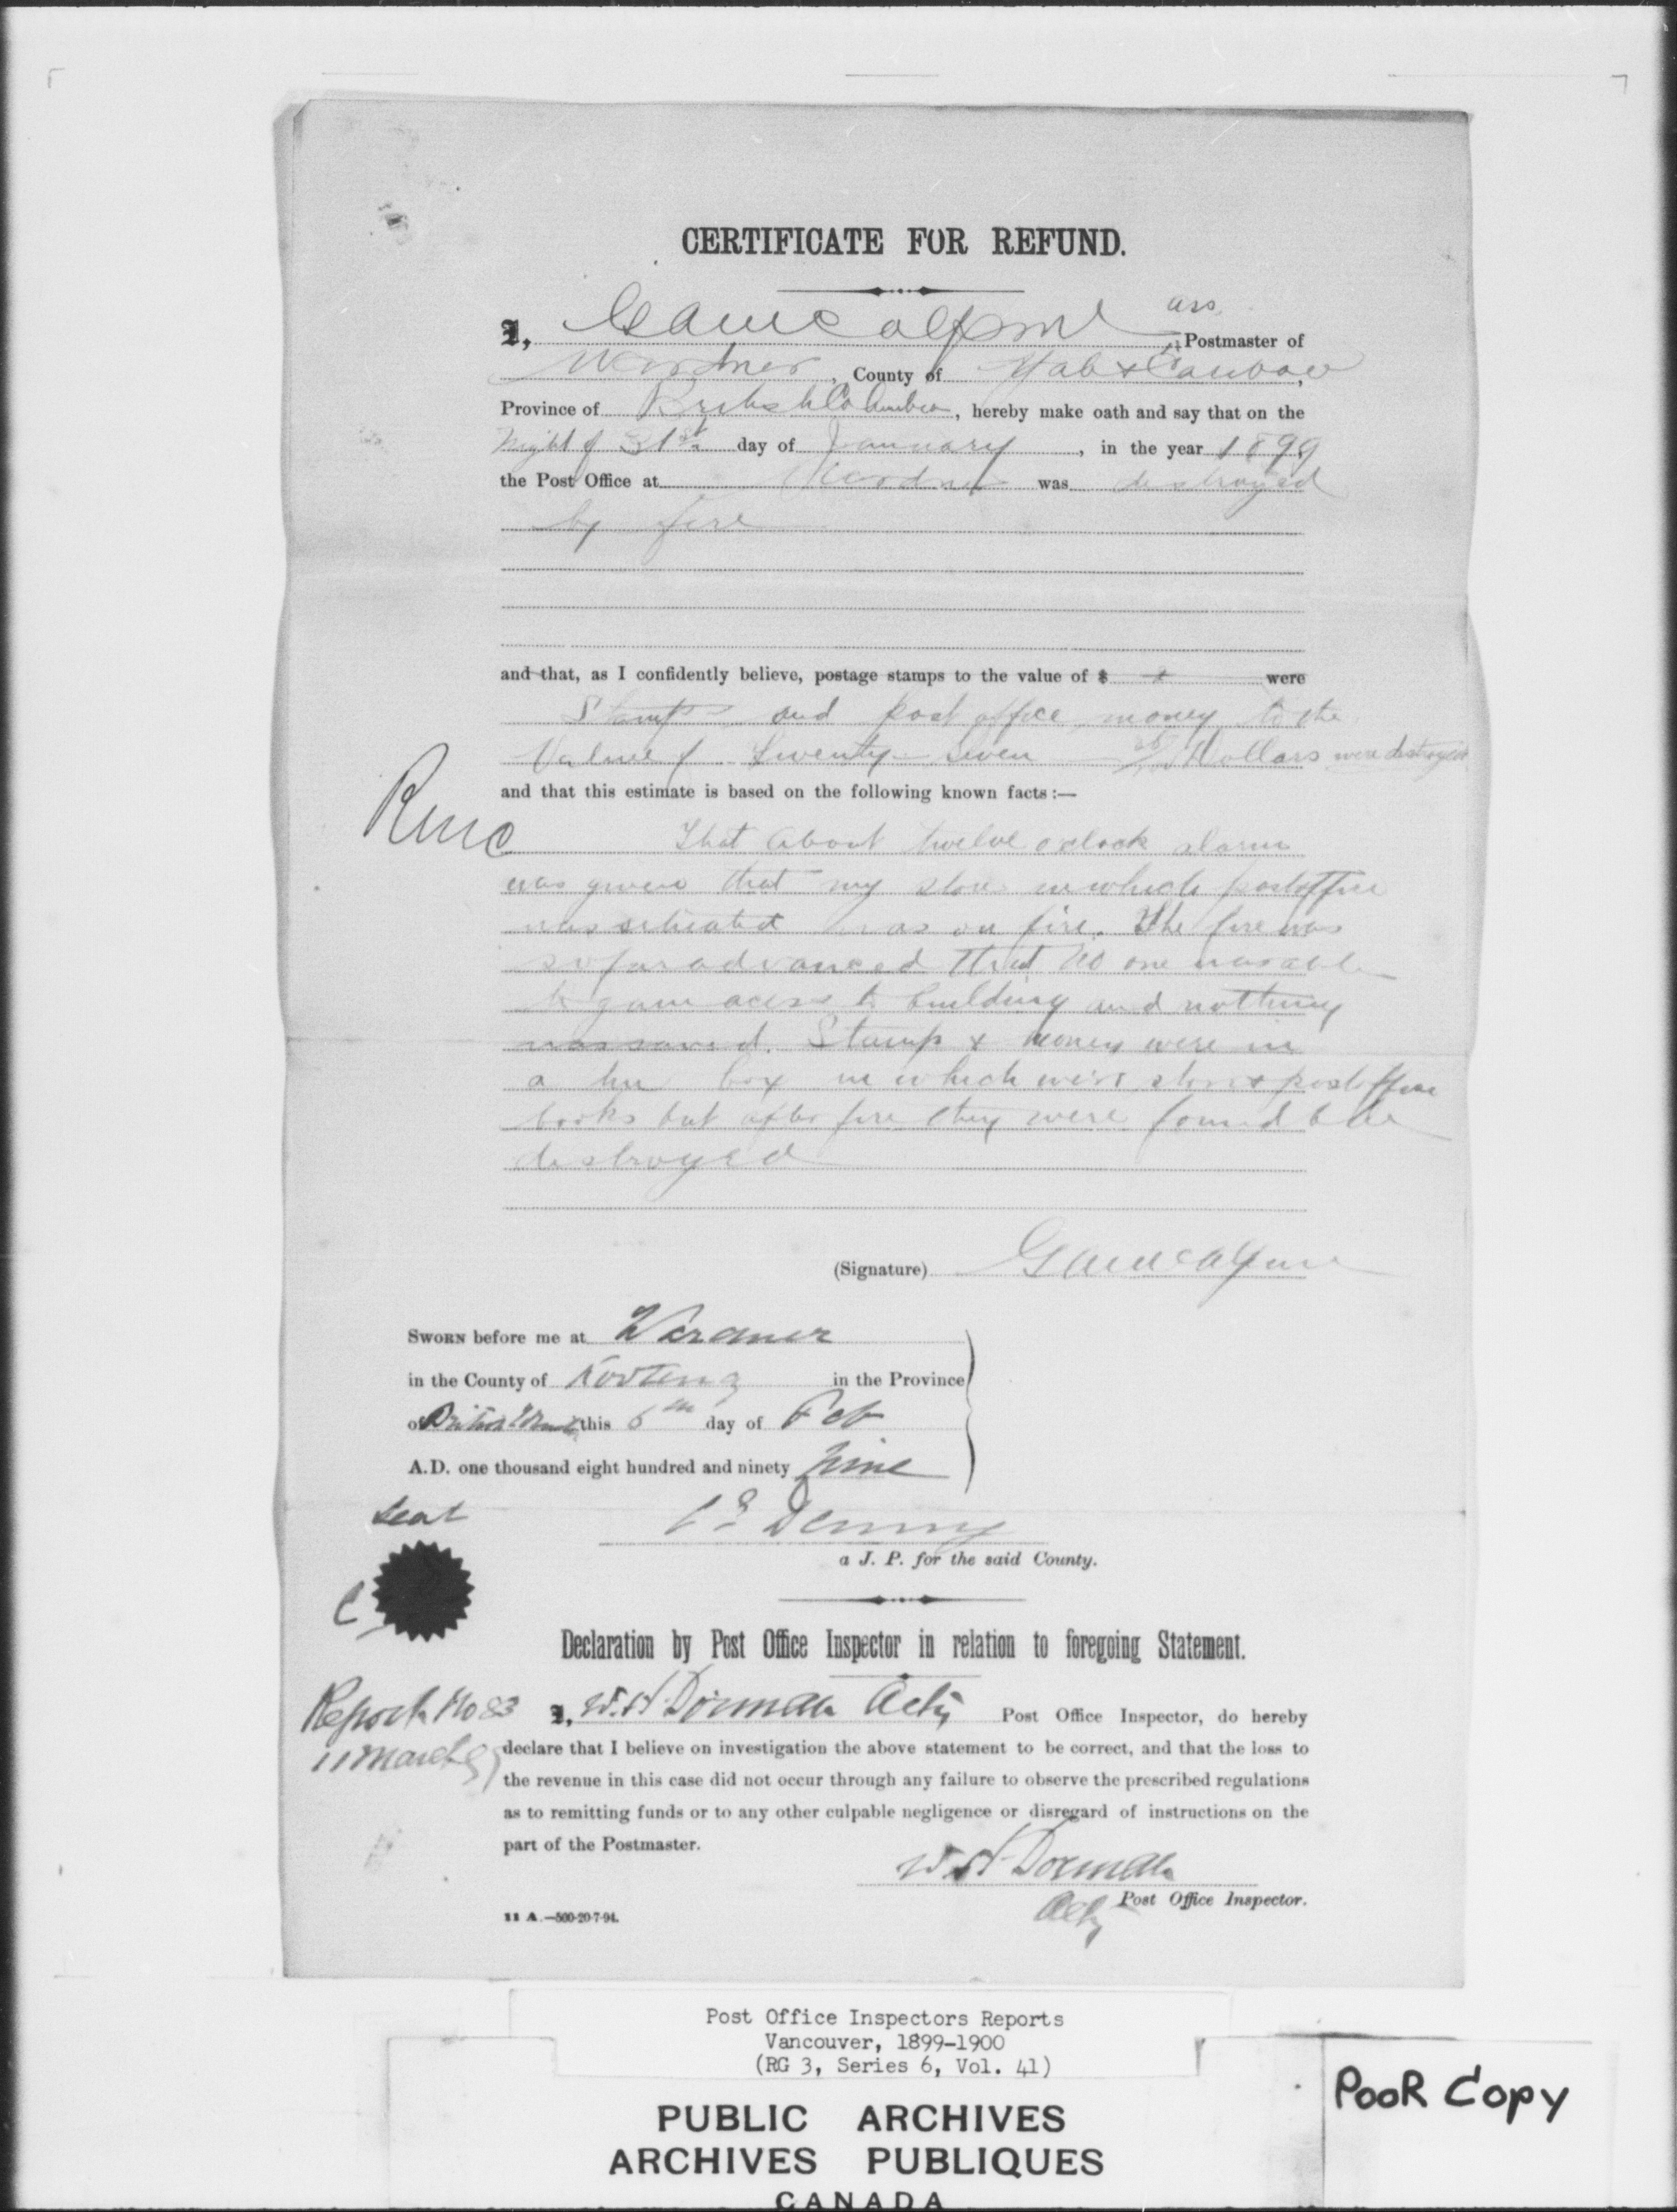 CERTIFICATE FOR REFUND.
I, ass.
Postmaster of
Wardner, County of Yale & Cariboo,
Province of British Columbia, hereby make oath and say that on the
Night of 31st day of January, in the year 1899
the Post Office at Wardner was destroyed
by fire
and that, as I confidently believe, postage stamps to the value of $ were
Stamps and post office money to the
Value of Twenty-seven Dollars were destroyed
and that this estimate is based on the following known facts:—
That about twelve oclock alarm
was given that my store in which postoffice
was situated was on fire. The fire was
so far advanced that no one was able
to gain acess to building and nothing
was saved. Stamp & money were in
a tin box in which were store & postoffice
books but after fire they were found to be
destroyed
(Signature)
SWORN before me at Wardner
in the County of Kootenay in the Province
of British this 6th day of Feb
A.D. one thousand eight hundred and ninety nine
Seal
Denny
a J. P. for the said County.
C
Declaration by Post Office Inspector in relation to foregoing Statement.
Report No 83
11 March
I, W. H. Dorman Actg Post Office Inspector, do hereby
declare that I believe on investigation the above statement to be correct, and that the loss to
the revenue in this case did not occur through any failure to observe the prescribed regulations
as to remitting funds or to any other culpable negligence or disregard of instructions on the
part of the Postmaster.
W. H. Dorman
Actg Post Office Inspector.
11 A.—500-20-7-94.
Post Office Inspectors Reports
Vancouver, 1899-1900
(RG 3, Series 6, Vol. 41)
POOR COPY
PUBLIC ARCHIVES
ARCHIVES PUBLIQUES
CANADA